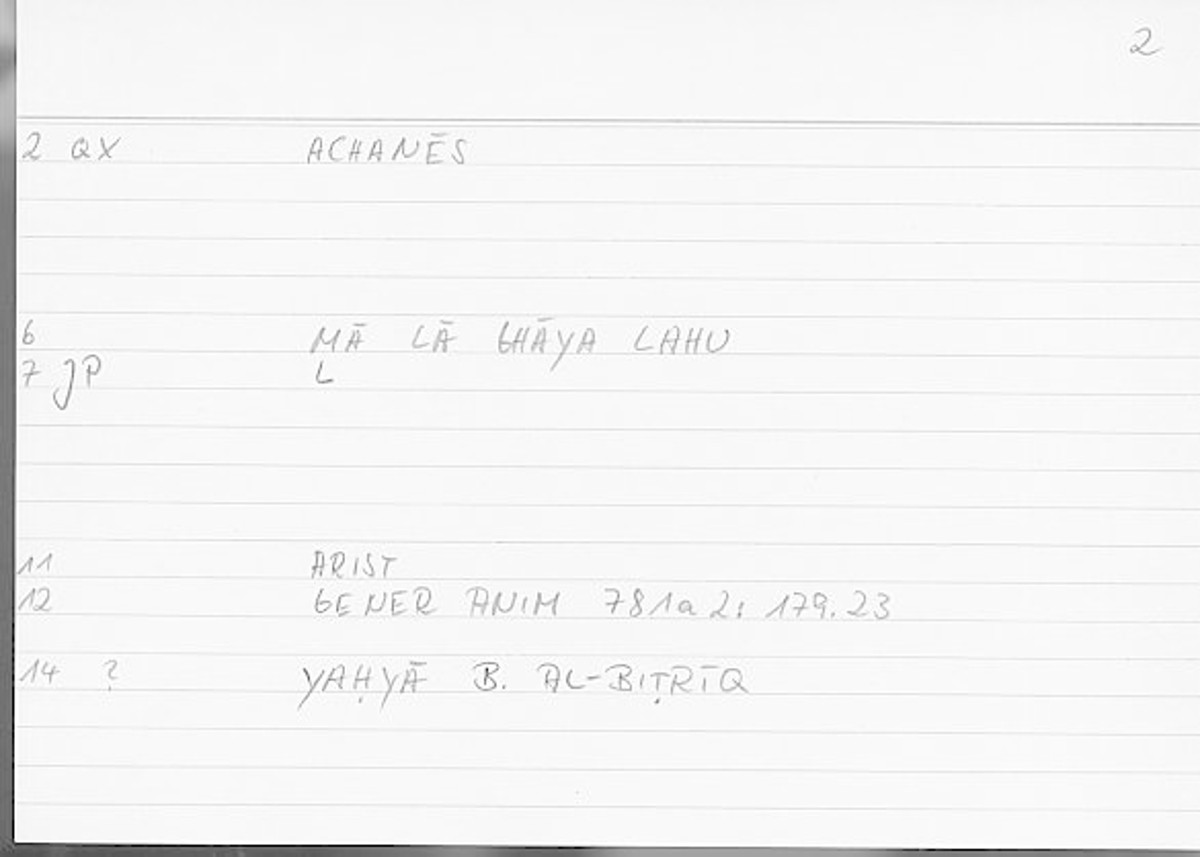 2
2 QX ACHANĒS
6 MĀ LĀ GHĀYA LAHU
7 JP L
11 ARIST
12 GENER ANIM 781a2: 179.23
14 ? YAḤYĀ B. AL-BIṬRĪQ